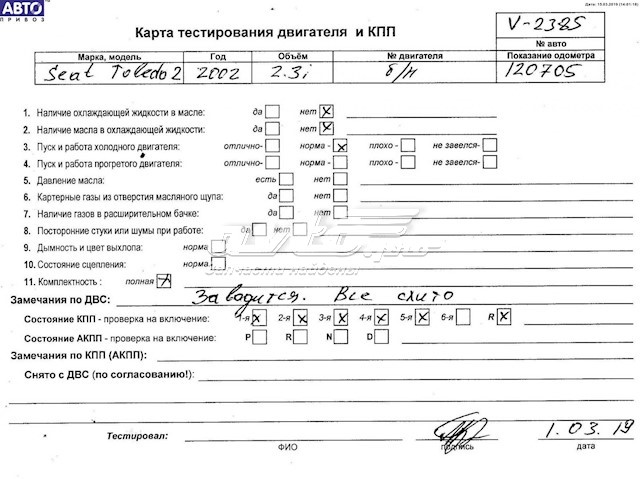 АВТО
ПРИВОЗ
Дата: 15.03.2019 (14:01:18)
Карта тестирования двигателя и КПП
V-2385
№ авто
Марка, модель Год Объём № двигателя Показание одометра
Seat Toledo 2 2002 2.3i б/н 120705
1. Наличие охлаждающей жидкости в масле: да нет x
2. Наличие масла в охлаждающей жидкости: да нет x
3. Пуск и работа холодного двигателя: отлично- норма - x плохо - не завелся-
4. Пуск и работа прогретого двигателя: отлично- норма - плохо - не завелся-
5. Давление масла: есть нет
6. Картерные газы из отверстия масляного щупа: да нет
7. Наличие газов в расширительном бачке: да нет
8. Посторонние стуки или шумы при работе: да нет
9. Дымность и цвет выхлопа: норма
10. Состояние сцепления: норма
11. Комплектность : полная x
Замечания по ДВС: Заводится. Все слито
Состояние КПП - проверка на включение: 1-я x 2-я x 3-я x 4-я x 5-я x 6-я R x
Состояние АКПП - проверка на включение: P R N D
Замечания по КПП (АКПП):
Снято с ДВС (по согласованию!):
Тестировал: 1.03.19
ФИО подпись дата